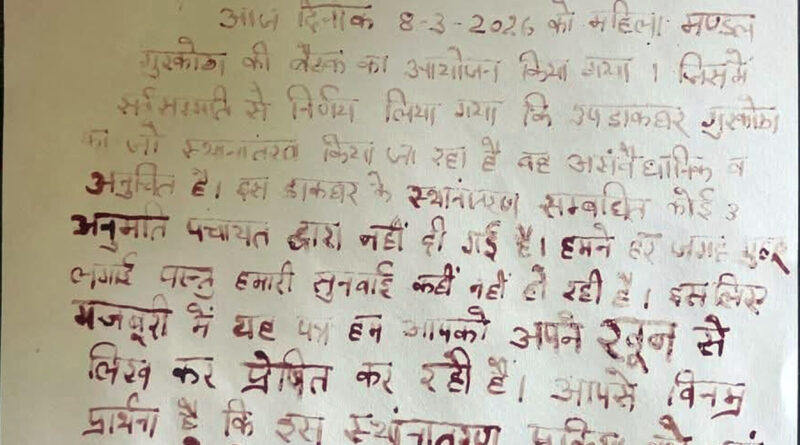 आज दिनांक 8-3-2026 को महिला मण्डल
गुरकोठा की बैठक का आयोजन किया गया । जिसमें
सर्वसम्मति से निर्णय लिया गया कि उपडाकघर गुरकोठा
का जो स्थानांतरण किया जा रहा है वह असंवैधानिक व
अनुचित है। इस डाकघर के स्थानांतरण सम्बंधित कोई
अनुमति पंचायत द्वारा नहीं दी गई है। हमने हर जगह
लगाई परन्तु हमारी सुनवाई कहीं नहीं हो रही है। इसलिए
मजबूरी में यह पत्र हम आपको अपने खून से
लिख कर प्रेषित कर रही हैं। आपसे विनम्र
प्रार्थना है कि इस स्थांनातरण